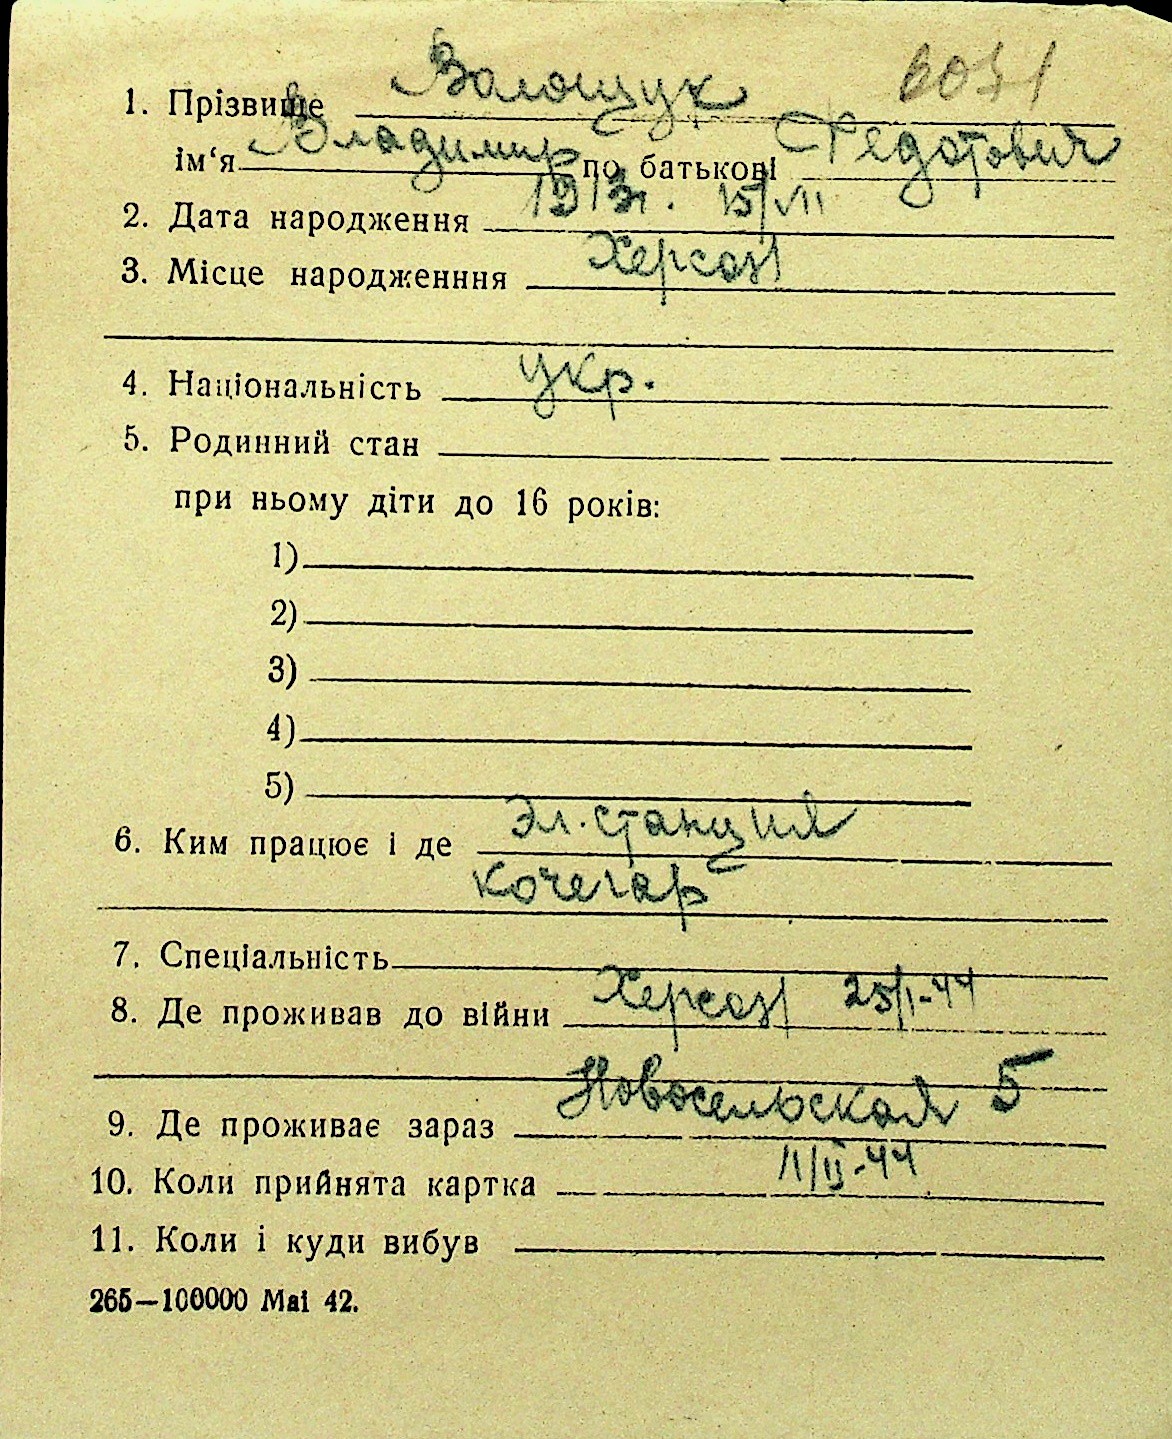 1. Прізвище Волощук
ім‘я Владимир по батькові Федотович
2. Дата народження 1913г. 15/VII
3. Місце народженння Херсон
4. Національність укр.
5. Родинний стан
при ньому діти до 16 років:
1)
2)
3)
4)
5)
6. Ким працює і де Эл. станция
кочегар
7. Спеціальність
8. Де проживав до війни Херсон 25/I-44
9. Де проживає зараз Новосельская 5
10. Коли прийнята картка 11/II-44
11. Коли і куди вибув
265—100000 Mai 42.